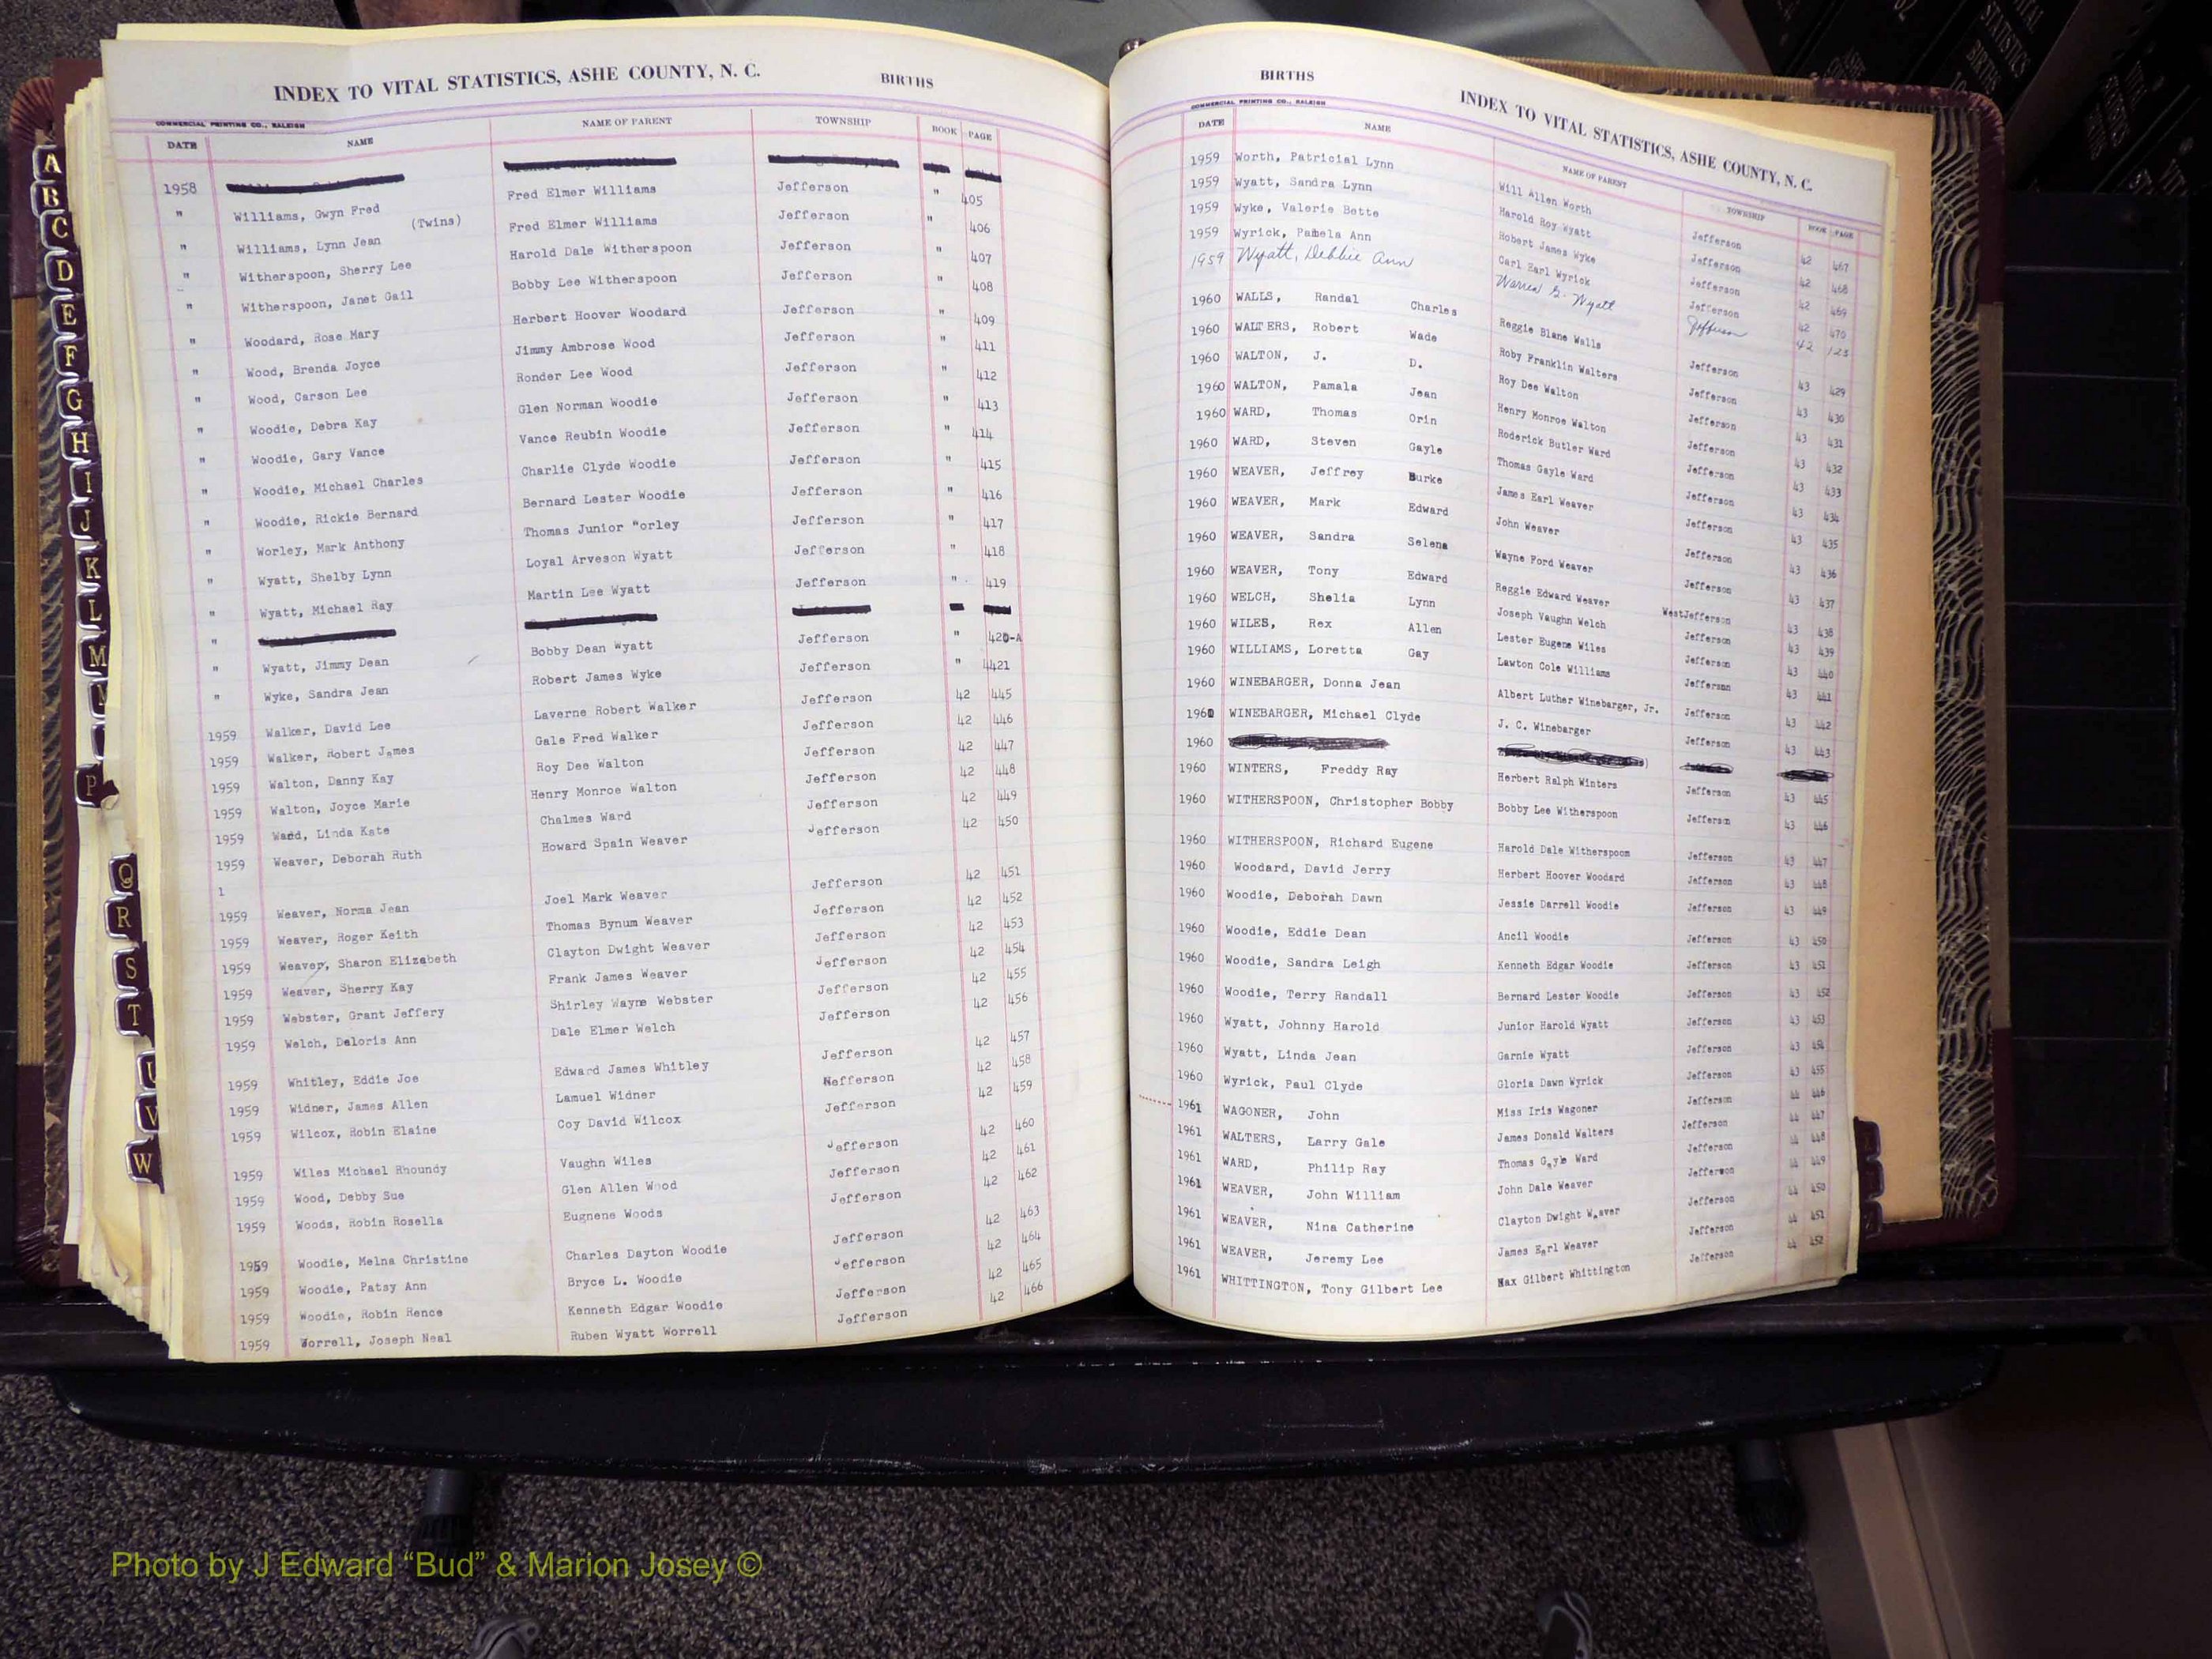 INDEX TO VITAL STATISTICS, ASHE COUNTY, N. C. BIRTHS
COMMERCIAL PRINTING CO., RALEIGH
DATE NAME NAME OF PARENT TOWNSHIP BOOK PAGE
1958
" Williams, Gwyn Fred Fred Elmer Williams Jefferson " 405
(Twins)
" Williams, Lynn Jean Fred Elmer Williams Jefferson " 406
" Witherspoon, Sherry Lee Harold Dale Witherspoon Jefferson " 407
" Witherspoon, Janet Gail Bobby Lee Witherspoon Jefferson " 408
" Woodard, Rose Mary Herbert Hoover Woodard Jefferson " 409
" Wood, Brenda Joyce Jimmy Ambrose Wood Jefferson " 411
" Wood, Carson Lee Ronder Lee Wood Jefferson " 412
" Woodie, Debra Kay Glen Norman Woodie Jefferson " 413
" Woodie, Gary Vance Vance Reubin Woodie Jefferson " 414
" Woodie, Michael Charles Charlie Clyde Woodie Jefferson " 415
" Woodie, Rickie Bernard Bernard Lester Woodie Jefferson " 416
" Worley, Mark Anthony Thomas Junior "orley Jefferson " 417
" Wyatt, Shelby Lynn Loyal Arveson Wyatt Jefferson " 418
" Wyatt, Michael Ray Martin Lee Wyatt Jefferson " 419
"
" Wyatt, Jimmy Dean Bobby Dean Wyatt Jefferson " 420-A
" Wyke, Sandra Jean Robert James Wyke Jefferson " 421
1959 Walker, David Lee Laverne Robert Walker Jefferson 42 445
1959 Walker, Robert James Gale Fred Walker Jefferson 42 446
1959 Walton, Danny Kay Roy Dee Walton Jefferson 42 447
1959 Walton, Joyce Marie Henry Monroe Walton Jefferson 42 448
1959 Ward, Linda Kate Chalmes Ward Jefferson 42 449
1959 Weaver, Deborah Ruth Howard Spain Weaver Jefferson 42 450
1
1959 Weaver, Norma Jean Joel Mark Weaver Jefferson 42 451
1959 Weaver, Roger Keith Thomas Bynum Weaver Jefferson 42 452
1959 Weaver, Sharon Elizabeth Clayton Dwight Weaver Jefferson 42 453
1959 Weaver, Sherry Kay Frank James Weaver Jefferson 42 454
1959 Webster, Grant Jeffery Shirley Wayne Webster Jefferson 42 455
1959 Welch, Deloris Ann Dale Elmer Welch Jefferson 42 456
1959 Whitley, Eddie Joe Edward James Whitley Jefferson 42 457
1959 Widner, James Allen Lamuel Widner Nefferson 42 458
1959 Wilcox, Robin Elaine Coy David Wilcox Jefferson 42 459
1959 Wiles Michael Rhoundy Vaughn Wiles Jefferson 42 460
1959 Wood, Debby Sue Glen Allen Wood Jefferson 42 461
1959 Woods, Robin Rosella Eugnene Woods Jefferson 42 462
1959 Woodie, Melna Christine Charles Dayton Woodie Jefferson 42 463
1959 Woodie, Patsy Ann Bryce L. Woodie Jefferson 42 464
1959 Woodie, Robin Rence Kenneth Edgar Woodie Jefferson 42 465
1959 Worrell, Joseph Neal Ruben Wyatt Worrell Jefferson 42 466
A
B
C
D
E
F
G
H
I
J
K
L
M
P
Q
R
S
T
U
V
W
BIRTHS INDEX TO VITAL STATISTICS, ASHE COUNTY, N. C.
COMMERCIAL PRINTING CO., RALEIGH
DATE NAME NAME OF PARENT TOWNSHIP BOOK PAGE
1959 Worth, Patricial Lynn Will Allen Worth Jefferson 42 467
1959 Wyatt, Sandra Lynn Harold Roy Wyatt Jefferson 42 468
1959 Wyke, Valerie Bette Robert James Wyke Jefferson 42 469
1959 Wyrick, Pamela Ann Carl Earl Wyrick Jefferson 42 470
1959 Wyatt, Debbie Ann Warren G. Wyatt Jefferson 42 123
1960 WALLS, Randal Charles Reggie Blane Walls Jefferson 43 429
1960 WALTERS, Robert Wade Roby Franklin Walters Jefferson 43 430
1960 WALTON, J. D. Roy Dee Walton Jefferson 43 431
1960 WALTON, Pamala Jean Henry Monroe Walton Jefferson 43 432
1960 WARD, Thomas Orin Roderick Butler Ward Jefferson 43 433
1960 WARD, Steven Gayle Thomas Gayle Ward Jefferson 43 434
1960 WEAVER, Jeffrey Burke James Earl Weaver Jefferson 43 435
1960 WEAVER, Mark Edward John Weaver Jefferson 43 436
1960 WEAVER, Sandra Selena Wayne Ford Weaver Jefferson 43 437
1960 WEAVER, Tony Edward Reggie Edward Weaver WestJefferson 43 438
1960 WELCH, Shelia Lynn Joseph Vaughn Welch Jefferson 43 439
1960 WILES, Rex Allen Lester Eugene Wiles Jefferson 43 440
1960 WILLIAMS, Loretta Gay Lawton Cole Williams Jefferson 43 441
1960 WINEBARGER, Donna Jean Albert Luther Winebarger, Jr. Jefferson 43 442
1960 WINEBARGER, Michael Clyde J. C. Winebarger Jefferson 43 443
1960
1960 WINTERS, Freddy Ray Herbert Ralph Winters Jefferson 43 445
1960 WITHERSPOON, Christopher Bobby Bobby Lee Witherspoon Jefferson 43 446
1960 WITHERSPOON, Richard Eugene Harold Dale Witherspoon Jefferson 43 447
1960 Woodard, David Jerry Herbert Hoover Woodard Jefferson 43 448
1960 Woodie, Deborah Dawn Jessie Darrell Woodie Jefferson 43 449
1960 Woodie, Eddie Dean Ancil Woodie Jefferson 43 450
1960 Woodie, Sandra Leigh Kenneth Edgar Woodie Jefferson 43 451
1960 Woodie, Terry Randall Bernard Lester Woodie Jefferson 43 452
1960 Wyatt, Johnny Harold Junior Harold Wyatt Jefferson 43 453
1960 Wyatt, Linda Jean Garnie Wyatt Jefferson 43 454
1960 Wyrick, Paul Clyde Gloria Dawn Wyrick Jefferson 43 455
1961 WAGONER, John Miss Iris Wagoner Jefferson 44 446
1961 WALTERS, Larry Gale James Donald Walters Jefferson 44 447
1961 WARD, Philip Ray Thomas Gayle Ward Jefferson 44 448
1961 WEAVER, John William John Dale Weaver Jefferson 44 449
1961 WEAVER, Nina Catherine Clayton Dwight Weaver Jefferson 44 450
1961 WEAVER, Jeremy Lee James Earl Weaver Jefferson 44 451
1961 WHITTINGTON, Tony Gilbert Lee Max Gilbert Whittington Jefferson 44 452
VITAL
STATISTICS
BIRTHS
Photo by J Edward “Bud” & Marion Josey ©